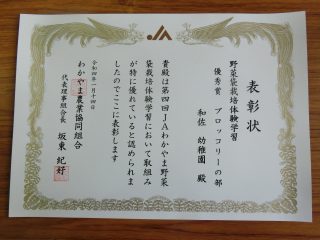 表彰状
野菜袋栽培体験学習
優秀賞 ブロッコリーの部
和佐 幼稚園 殿
貴殿は第四回JAわかやま野菜
袋栽培体験学習において取組み
が特に優れていると認められま
したのでここに表彰します
令和四年一月十四日
わかやま農業協同組合
代表理事組合長 坂東 紀好